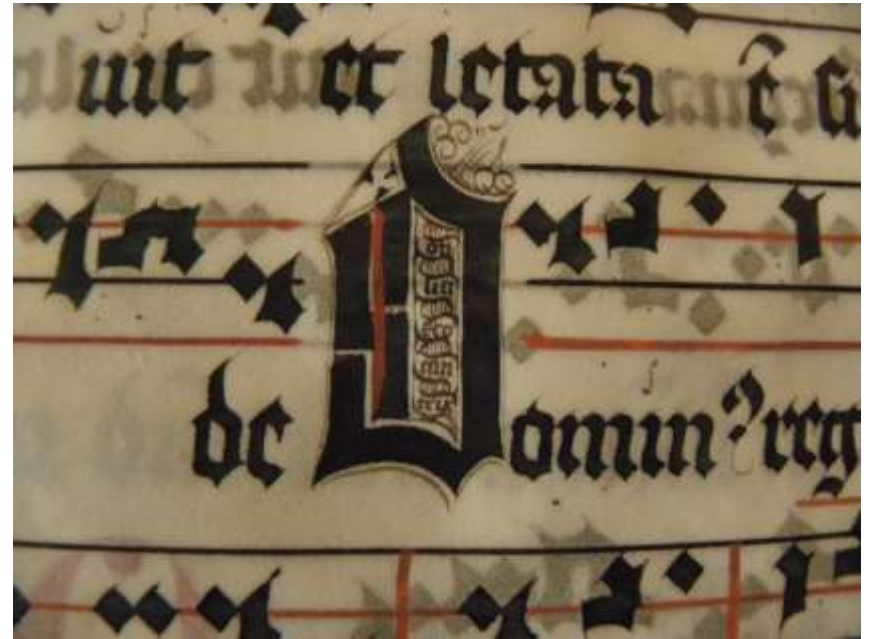 uit et letata ē si
de Dominꝰ reg